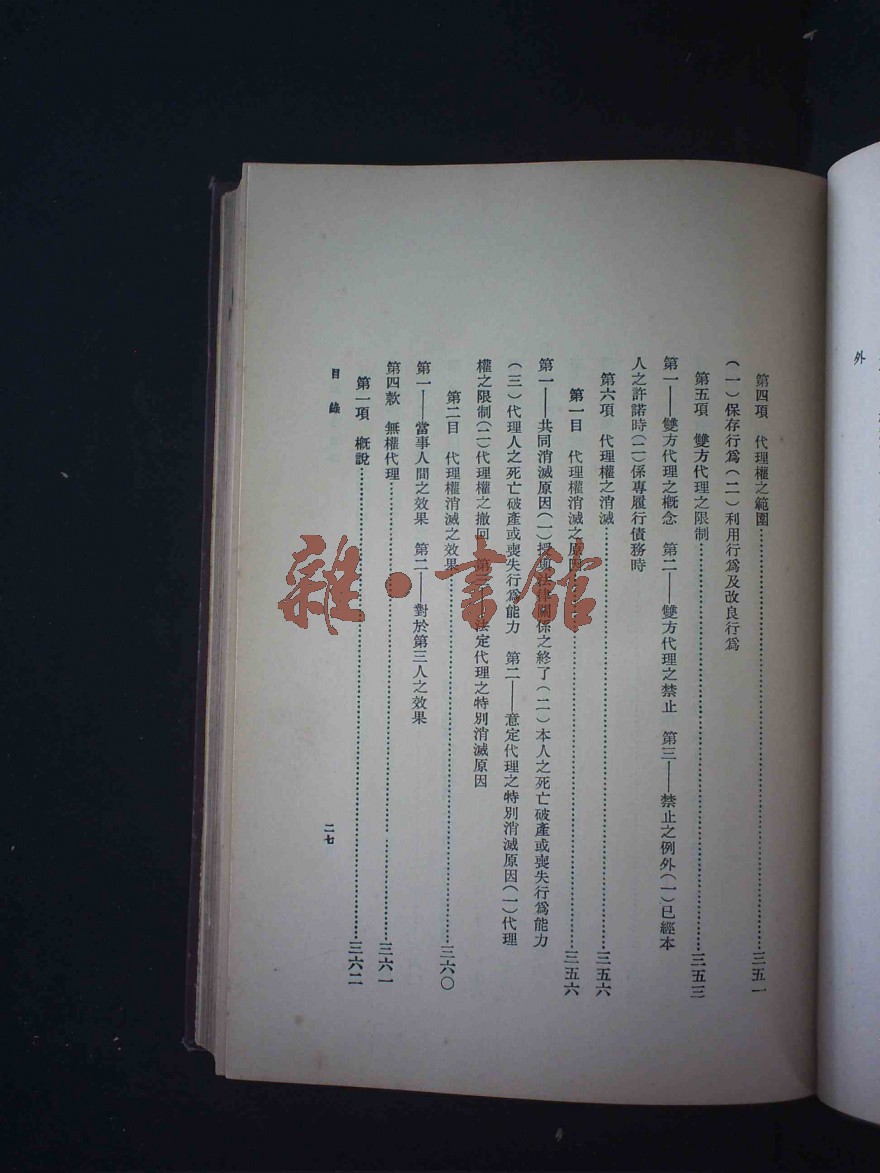 外
第四項　代理權之範圍……三五一
(一)保存行爲(二)利用行爲及改良行爲
第五項　雙方代理之限制……三五三
第一——雙方代理之概念　第二——雙方代理之禁止　第三——禁止之例外(一)已經本
人之許諾時(二)係專履行債務時
第六項　代理權之消滅……三五六
第一目　代理權消滅之原因……三五六
第一——共同消滅原因(一)授與法律關係之終了(二)本人之死亡破產或喪失行爲能力
(三)代理人之死亡破產或喪失行爲能力　第二——意定代理之特別消滅原因(一)代理
權之限制(二)代理權之撤回　第三——法定代理之特別消滅原因
第二目　代理權消滅之效果……三六〇
第一——當事人間之效果　第二——對於第三人之效果
第四款　無權代理……三六一
第一項　槪說……三六二
目錄
二七
雜·書館